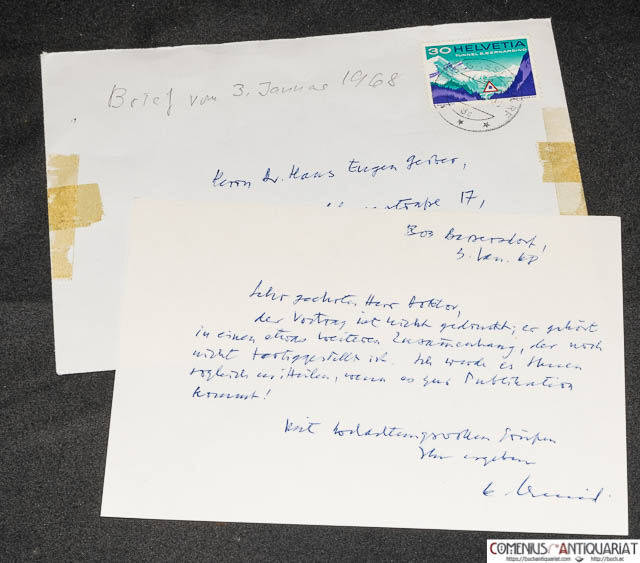 Brief vom 3. Januar 1968
30 HELVETIA
TUNNEL S. BERNARDINO
Herrn Dr. Hans Eugen Gerber,
17,
8303 Bassersdorf,
3. Jan. 68
Sehr geehrter Herr Doktor,
der Vortrag ist nicht gedruckt; er gehört
in einen etwas weiteren Zusammenhang, der noch
nicht fertiggestellt ist. Ich werde es Ihnen
sogleich mitteilen, wenn es zur Publikation
kommt!
Mit hochachtungsvollen Grüßen
Ihr ergebener
K. Schmid.
COMENIUS-ANTIQUARIAT
https://buchantiquariat.com https://buch.ac